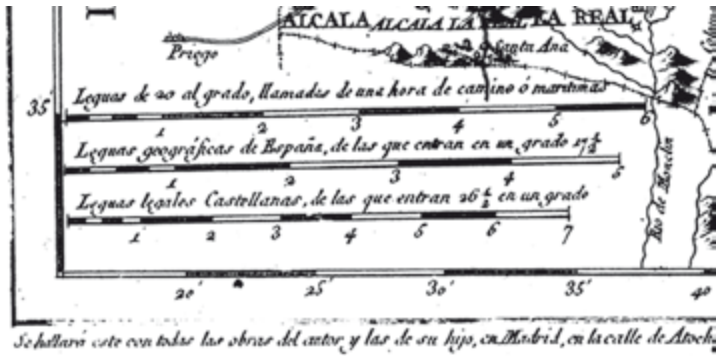 ALCALA ALCALA LA REAL LA REAL
Priego
Santa Ana
35'
Leguas de 20 al grado, llamadas de una hora de camino ó maritimas
1 2 3 4 5 6
Leguas geográficas de España, de las que entran en un grado 17½
1 2 3 4 5
Leguas legales Castellanas, de las que entran 26½ en un grado
1 2 3 4 5 6 7
Rio de Moclin
20' 25' 30' 35' 40
Se hallará este con todas las obras del autor y las de su hijo, en Madrid, en la calle de Atocha